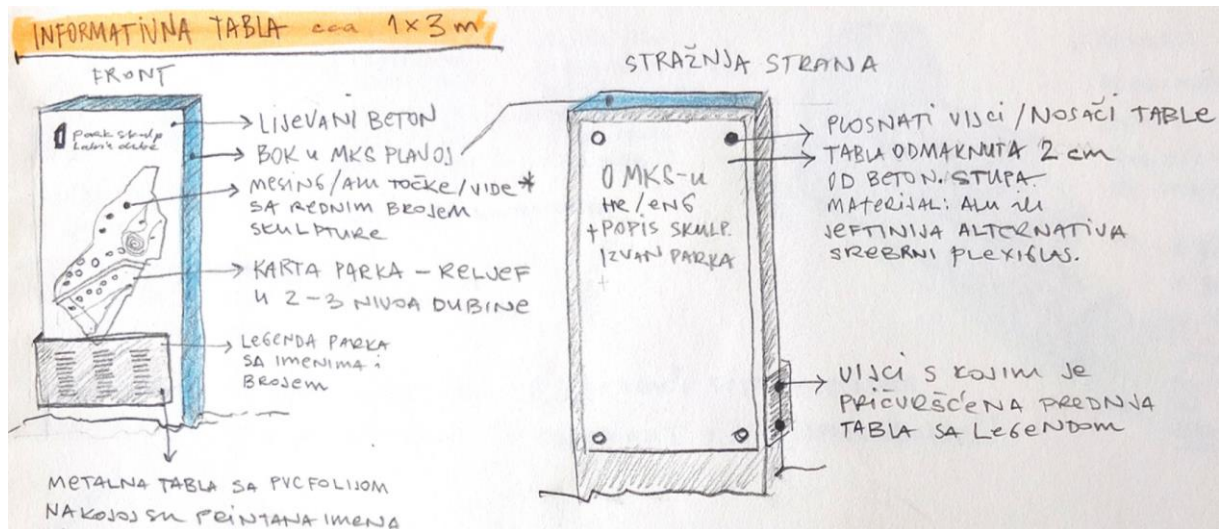 INFORMATIVNA TABLA cca 1×3 m
FRONT
Park skulp
Labin dubr
LIJEVANI BETON
BOK u MKS PLAVOJ
MESING/ALU TOČKE/VIDE*
SA REDNIM BROJEM
SKULPTURE
KARTA PARKA – RELJEF
U 2–3 NIVOA DUBINE
LEGENDA PARKA
SA IMENIMA i
BROJEM
METALNA TABLA SA PVC FOLIJOM
NA KOJOJ SU PRINTANA IMENA
STRAŽNJA STRANA
O MKS-u
HR/ENG
+ POPIS SKULP.
IZVAN PARKA
+
PLOSNATI VIJCI/NOSAČI TABLE
TABLA ODMAKNUTA 2 cm
OD BETON. STUPA.
MATERIJAL: ALU ILI
JEFTINIJA ALTERNATIVA
SREBRNI PLEXIGLAS.
VIJCI S KOJIM JE
PRIČVRŠĆENA PREDNJA
TABLA SA LEGENDOM